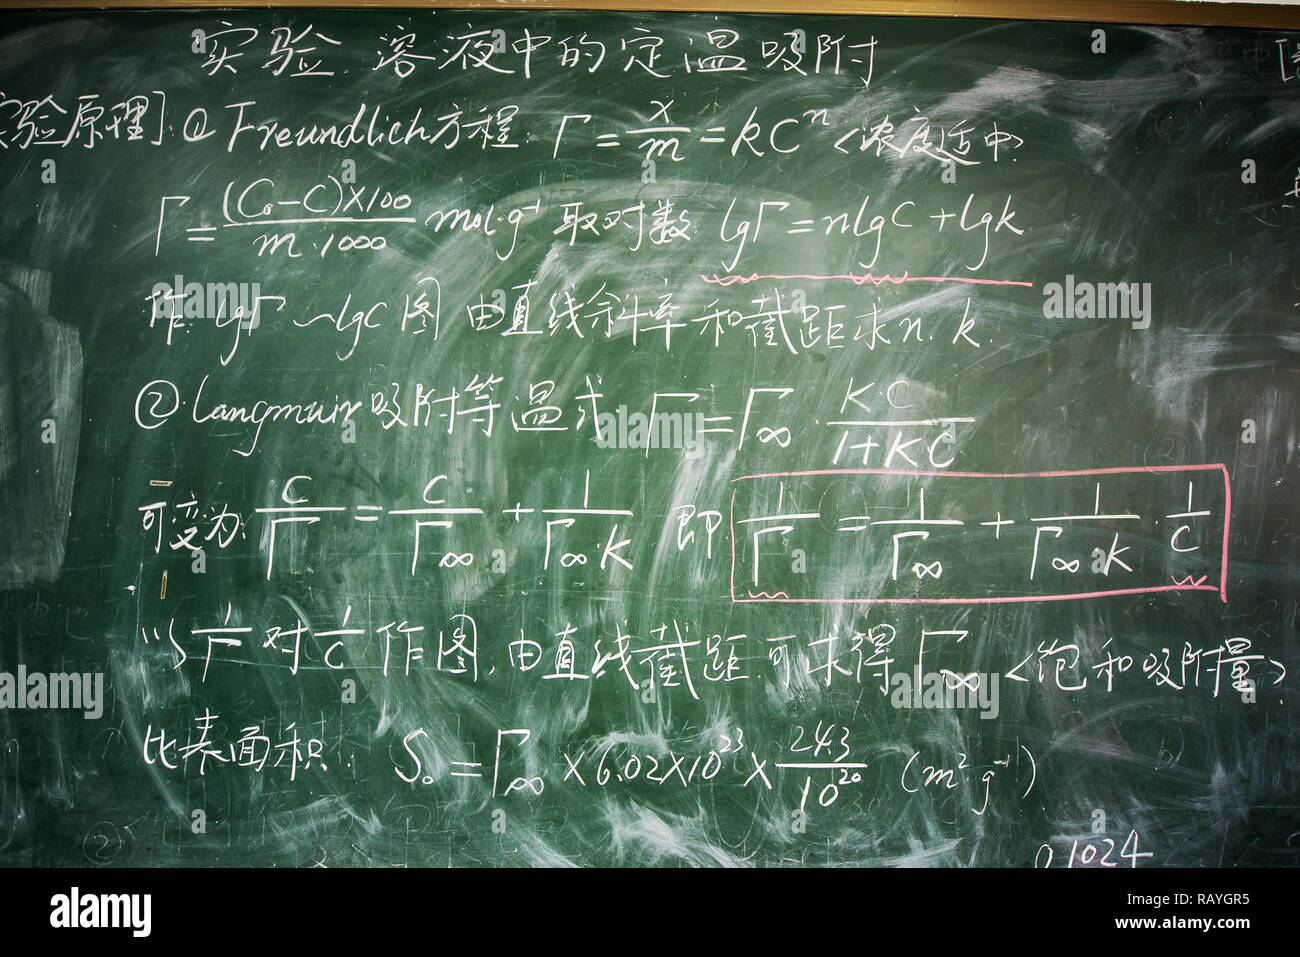 实验 溶液中的定温吸附
实验原理] ① Freundlich方程: Γ = x/m = kCⁿ <浓度适中>
Γ = (C₀-C)×100 / m·1000 mol·g⁻¹ 取对数: lgΓ = nlgC + lgk
作 lgΓ ~ lgC 图 由直线斜率和截距求n. k.
② Langmuir吸附等温式 Γ = Γ∞ · K·C / 1+KC
可变为: C/Γ = C/Γ∞ + 1/Γ∞·K 即 1/Γ = 1/Γ∞ + 1/Γ∞·K · 1/C
以 1/Γ 对 1/C 作图, 由直线截距可求得 Γ∞ <饱和吸附量>
比表面积: S₀ = Γ∞ × 6.02×10²³ × 24.3/10²⁰ (m² g⁻¹)
0.1024
alamy
Image ID: RAYGR5
www.alamy.com